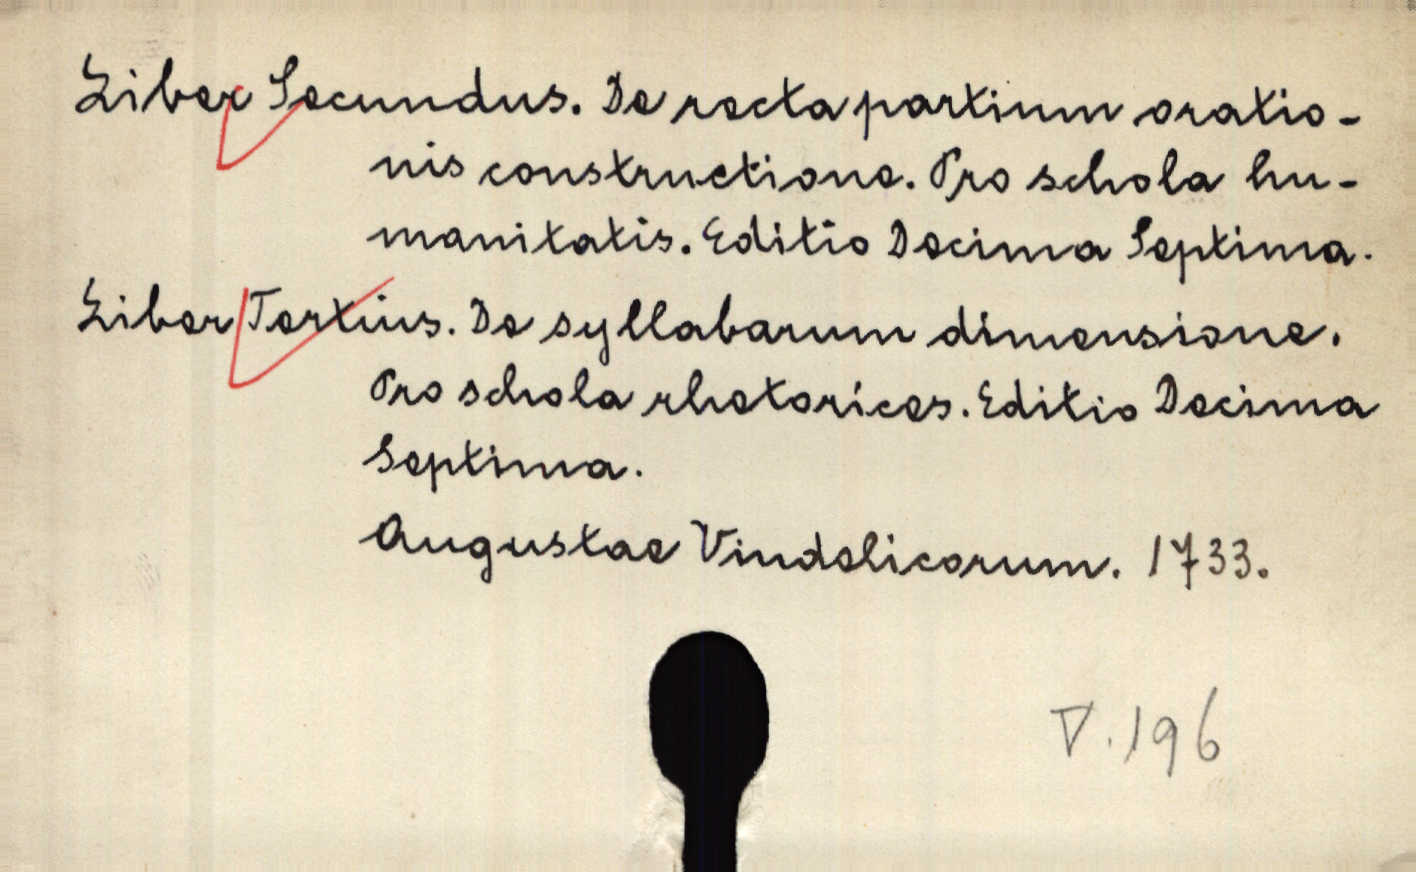 Liber Secundus. De recta partium oratio-
nis constructione. Pro schola hu-
manitatis. Editio Decima Septima.
Liber Tertius. De syllabarum dimensione.
Pro schola rhetorices. Editio Decima
Septima.
Augustae Vindelicorum. 1733.
V.196